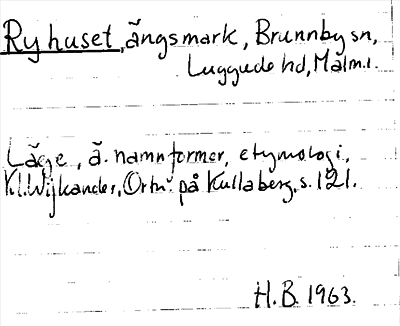 Ryhuset, ängsmark, Brunnby sn,
Luggude hd, Malm.l.
Läge, ä. namnformer, etymologi,
K.l. Wijkander, Ortn. på Kullaberg, s. 121.
H.B. 1963.